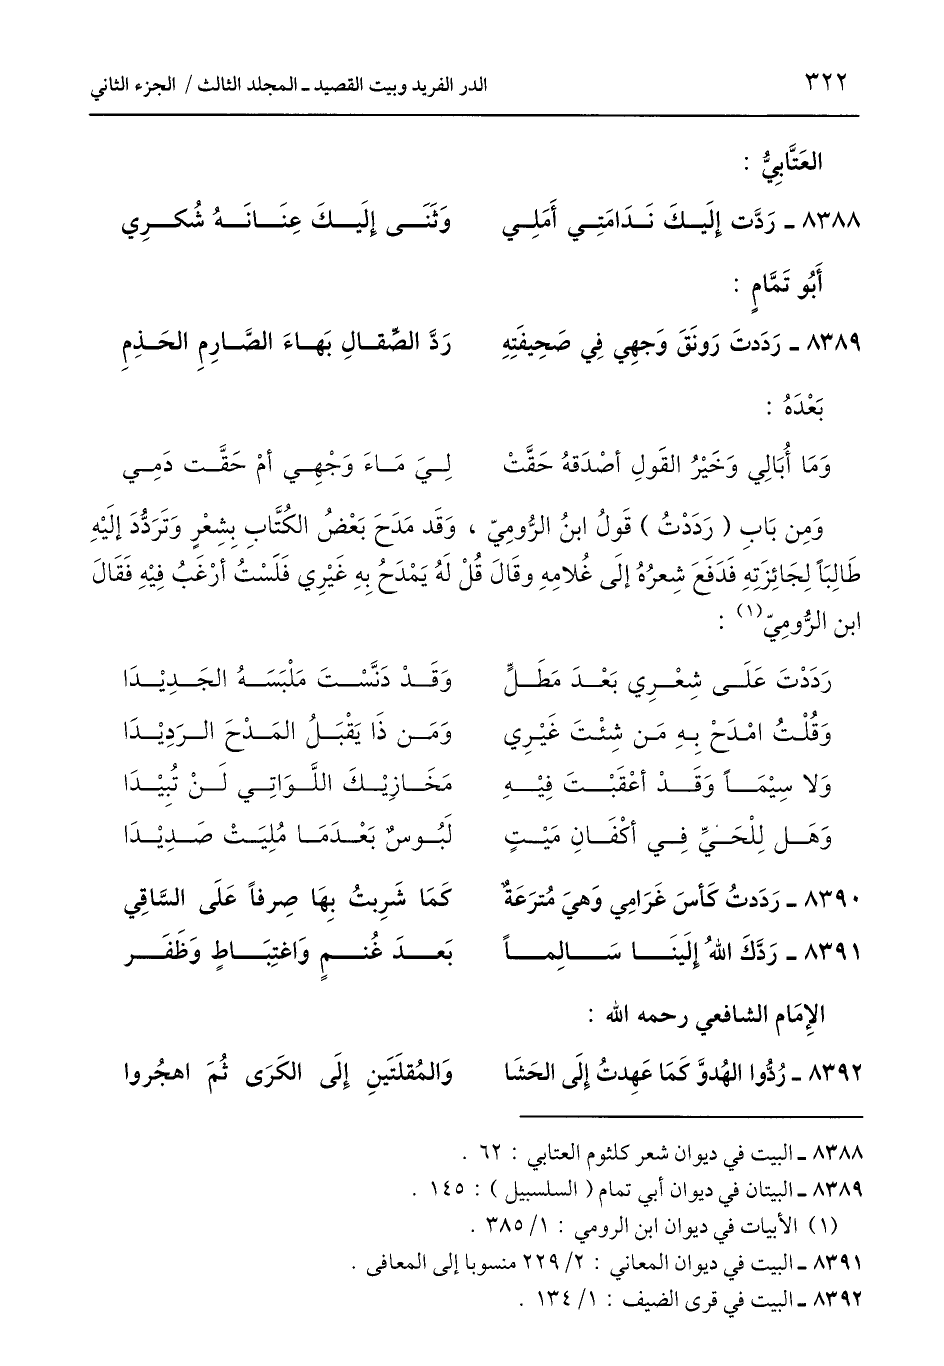 ٣٢٢ الدر الفريد وبيت القصيد ـ المجلد الثالث / الجزء الثاني
العَتَّابِيُّ :
٨٣٨٨ ـ رَدَّت إِلَيكَ نَدَامَتِي أَمَلِي وَثَنَى إِلَيكَ عِنَانَهُ شُكرِي
أَبُو تَمَّامٍ :
٨٣٨٩ ـ رَدَدتَ رَونَقَ وَجهِي فِي صَحِيفَتِهِ رَدَّ الصِّقالِ بَهاءَ الصَّارِمِ الخَذِمِ
بَعْدَهُ :
وَمَا أُبَالِي وَخَيْرُ القَولِ أصْدَقهُ حَقَّتْ لِيَ مَاءَ وَجْهِي أمْ حَقَّت دَمِي
وَمِن بَابِ ( رَدَدْتُ ) قَولُ ابنُ الرُّومِيّ ، وَقَد مَدَحَ بَعْضُ الكُتَّابِ بِشعْرٍ وَتَرَدُّدَ إلَيْهِ
طَالِبَاً لِجَائِزَتِهِ فَدَفَعَ شِعرُهُ إلَى غُلامِهِ وقَالَ قُلْ لَهُ يَمْدَحُ بِهِ غَيْرِي فَلَسْتُ أرْغَبُ فِيْهِ فَقَالَ
ابن الرُّومِيّ(١) :
رَدَدْتَ عَلَى شِعْرِي بَعْدَ مَطَلٍّ وَقَدْ دَنَّسْتَ مَلْبَسَهُ الجَدِيْدَا
وَقُلْتُ امْدَحْ بِهِ مَن شِئْتَ غَيْرِي وَمَن ذَا يَقْبَلُ المَدْحَ الرَدِيْدَا
وَلا سِيْمَاً وَقَدْ أعْقَبْتَ فِيْهِ مَخَازِيْكَ اللَّوَاتِي لَنْ تُبِيْدَا
وَهَل لِلْحَيِّ فِي أكْفَانِ مَيْتٍ لَبُوسٌ بَعْدَمَا مُلِيَتْ صَدِيْدَا
٨٣٩٠ ـ رَدَدتُ كَأسَ غَرَامِي وَهيَ مُترَعَةٌ كَمَا شَرِبتُ بِهَا صِرفاً عَلَى السَّاقِي
٨٣٩١ ـ رَدَّكَ اللهُ إِلَينَا سَالِماً بَعدَ غُنمٍ وَاغتِبَاطٍ وَظَفَر
الإِمَام الشافعي رحمه الله :
٨٣٩٢ ـ رُدُّوا الهُدوَّ كَمَا عَهِدتُ إِلَى الحَشَا وَالمُقلَتَينِ إِلَى الكَرَى ثُمَ اهجُروا
٨٣٨٨ ـ البيت في ديوان شعر كلثوم العتابي : ٦٢ .
٨٣٨٩ ـ البيتان في ديوان أبي تمام ( السلسبيل ) : ١٤٥ .
(١) الأبيات في ديوان ابن الرومي : ١/ ٣٨٥ .
٨٣٩١ ـ البيت في ديوان المعاني : ٢/ ٢٢٩ منسوبا إلى المعافى .
٨٣٩٢ ـ البيت في قرى الضيف : ١/ ١٣٤ .